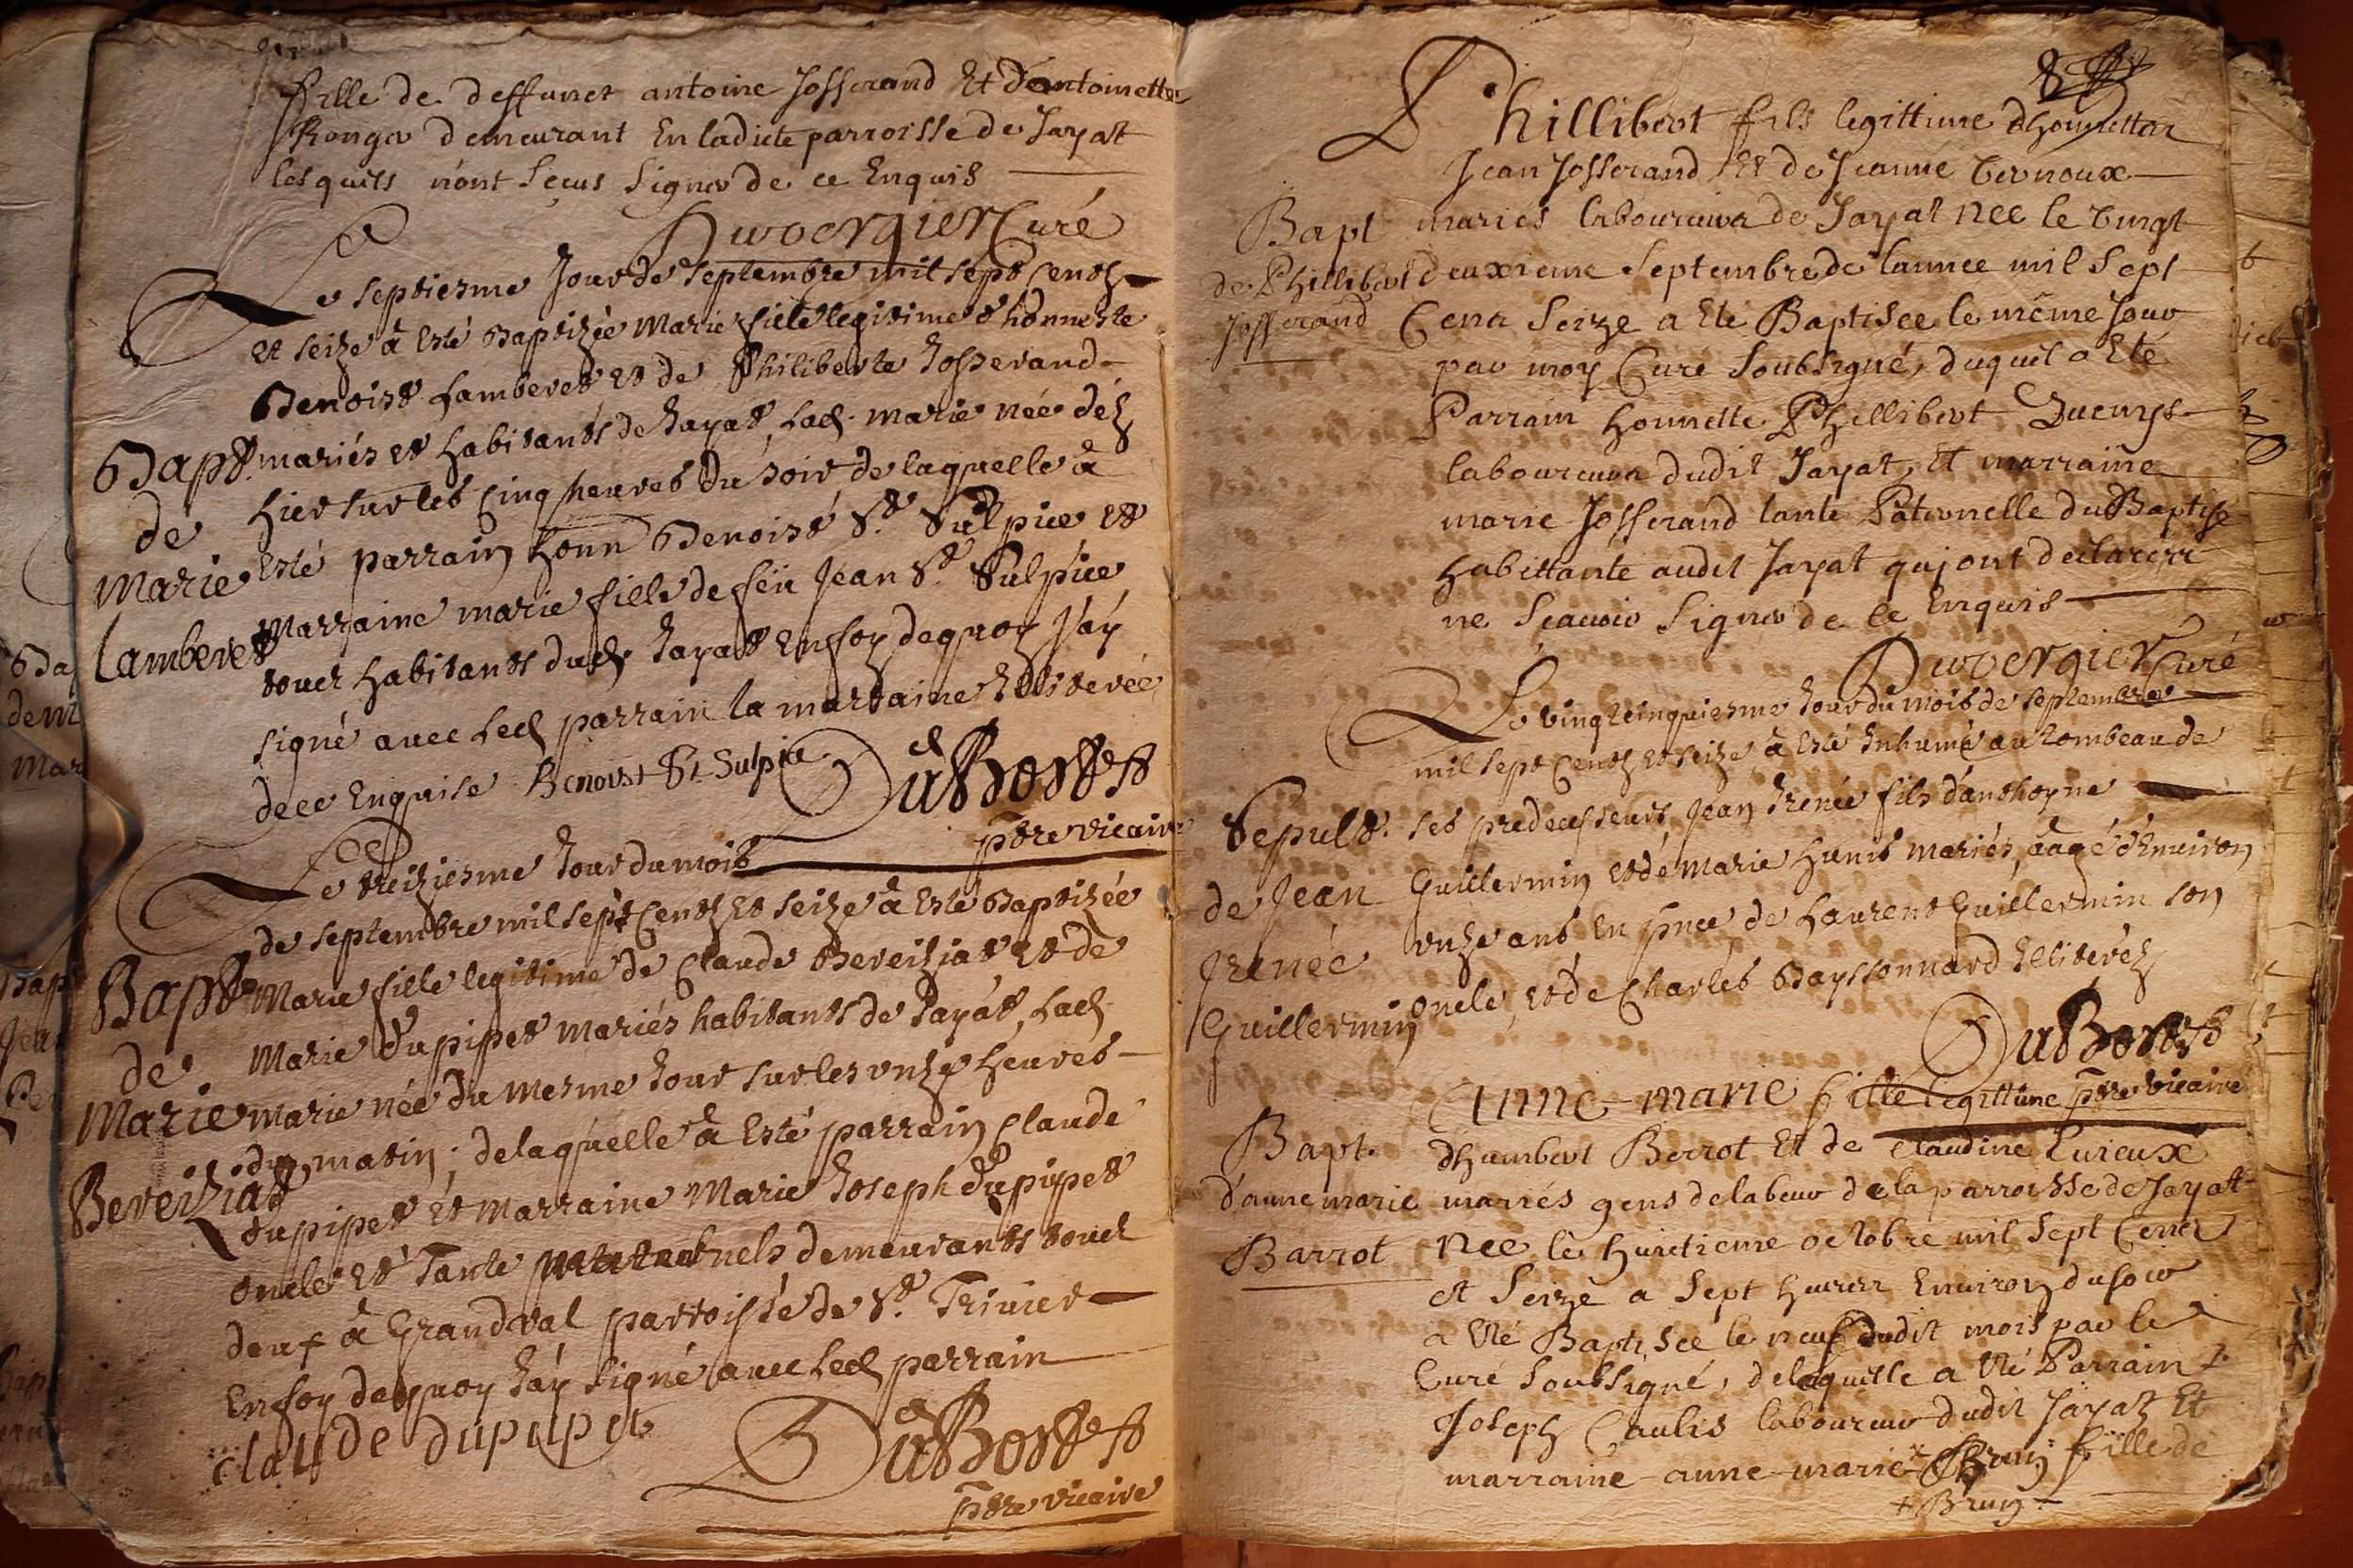 fille de deffunct antoine Josserand Et D'antoinette
Ronger demeurant En ladicte parroisse de Jayat
lesquels n'ont sçeus signer de ce Enquis
Duvergier Curé
Le septiesme Jour de septembre mil sept Centz
et seize à Esté Baptizée Marie fille legitime d'honneste
Benoist Lamberet et de Philiberte Josserand
mariés et habitants de Jayat, Lad. marie née déz
hier sur les cinq heures du soir de laquelle à
Esté parrain honn Benoist St. Sulpice et
Marraine marie fille de feü Jean St. Sulpice
touts habitants dud. Jayat En foy dequoy J'áy
signé avec Led parrain la marraine Illiterée
de ce Enquise Benoist St Sulpice
DuBost
pbre vicaire
Bapt.
de
Marie
Lamberet
Le treiziesme Jour du mois
de septembre mil sept Centz et seize à Esté Baptizée
Marie fille legitime de Claude Bereiziat et de
Marie Dupipet mariés habitants de Jayát, Lad.
marie née du mesme Jour sur les unze heures
du matin; de laquelle à Esté parrain Claude
dupipet et marraine Marie Joseph dupipet
oncle et Tante maternels demeurants touts
deux à Grandval parroisse de St. Trivier
En foy dequoy J'áy signé avec Led parrain
claude dupupet
DuBost
pbre vicaire
Bapt.
de
Marie
Bereiziat
8
Phillibert fils legittime d'honnettes
Jean Josserand Et de Jeanne Vernoux
mariés laboureurs de Jayat née le vingt
deuxieme Septembre de l'annee mil Sept
Cent Seize a Eté Baptisée le même Jour
par moy Curé Soubsigné, duquel a Eté
Parrain honnette Phillibert
laboureur dudit Jayat, Et marraine
marie Josserand tante Paternelle du Baptisé
habittante audit Jayat qui ont declarez
ne Scavoir Signer de ce Enquis
Duvergier Curé
Bapt
de Phillibert
Josserand
Le vingtcinquiesme Jour du mois de septembre
mil sept Centz et seize, à Esté Inhumé au Tombeau de
ses predecesseurs Jean Irenée fils d'anthoyne
Guillermin et de Marie Hunis mariés, âagé d'Environ
unze ans En pnce, de Laurent Guillermin son
oncle, et de Charles Bayssonnard Illiteréz
DuBost
pbre vicaire
Sepult.
de Jean
Irenée
Guillermin
Anne-marie fille legittime
d'humbert Berrot Et de Claudine Lureux
mariés gens de labeur de la parroisse de Jayat
née le huictieme octobre mil Sept Cent
et Seize a Sept heures Environ du soir
a Eté Baptisée le neuf dudit mois par le
Curé Soubsigné, de laquelle a Eté Parrain
Joseph Caulis laboureur dudit Jayat Et
marraine anne-marie x fille de
+ Brun
Bapt.
d'anne marie
Barrot